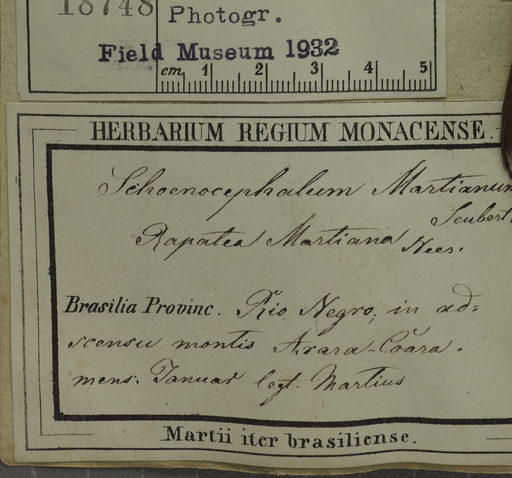 18748
Photogr.
Field Museum 1932
cm 1 2 3 4 5
HERBARIUM REGIUM MONACENSE.
Schoenocephalum Martianum
Seubert
Rapatea Martiana Nees.
Brasilia Provinc. Rio Negro, in ad=
scensu montis Arara-Coara.
mens. Januar legt. Martius
Martii iter brasiliense.